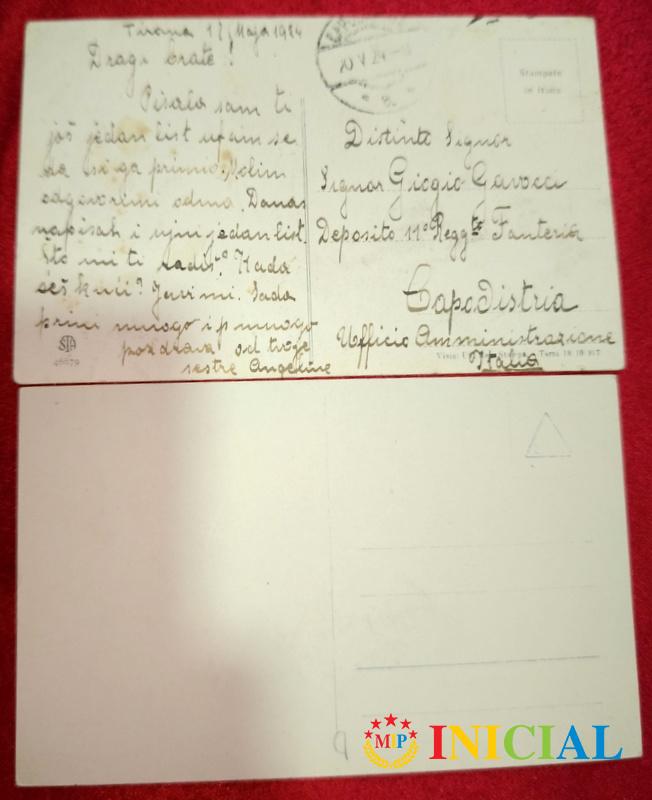 Tirana 17/Maja 1924
Dragi brate!
Pisala sam ti
još jedan list ufam se
da si ga primio. Volim
odgovori mi odma. Danas
napisah i njni jedan list.
Što mi ti radiš? Kada
ćeš kući? Javi mi. Sada
primi mnogo i pmnogo
pozdrava od tvoje
sestre Angeline
STA
46679
20 V 24
Stampato
in Italia
Distinto Signor
Signor Giogio Gavocci
Deposito 11° Reggte Fanteria
Capodistria
Ufficio Amministrazione
Italia
Terni 18 10 917
MIP INICIAL